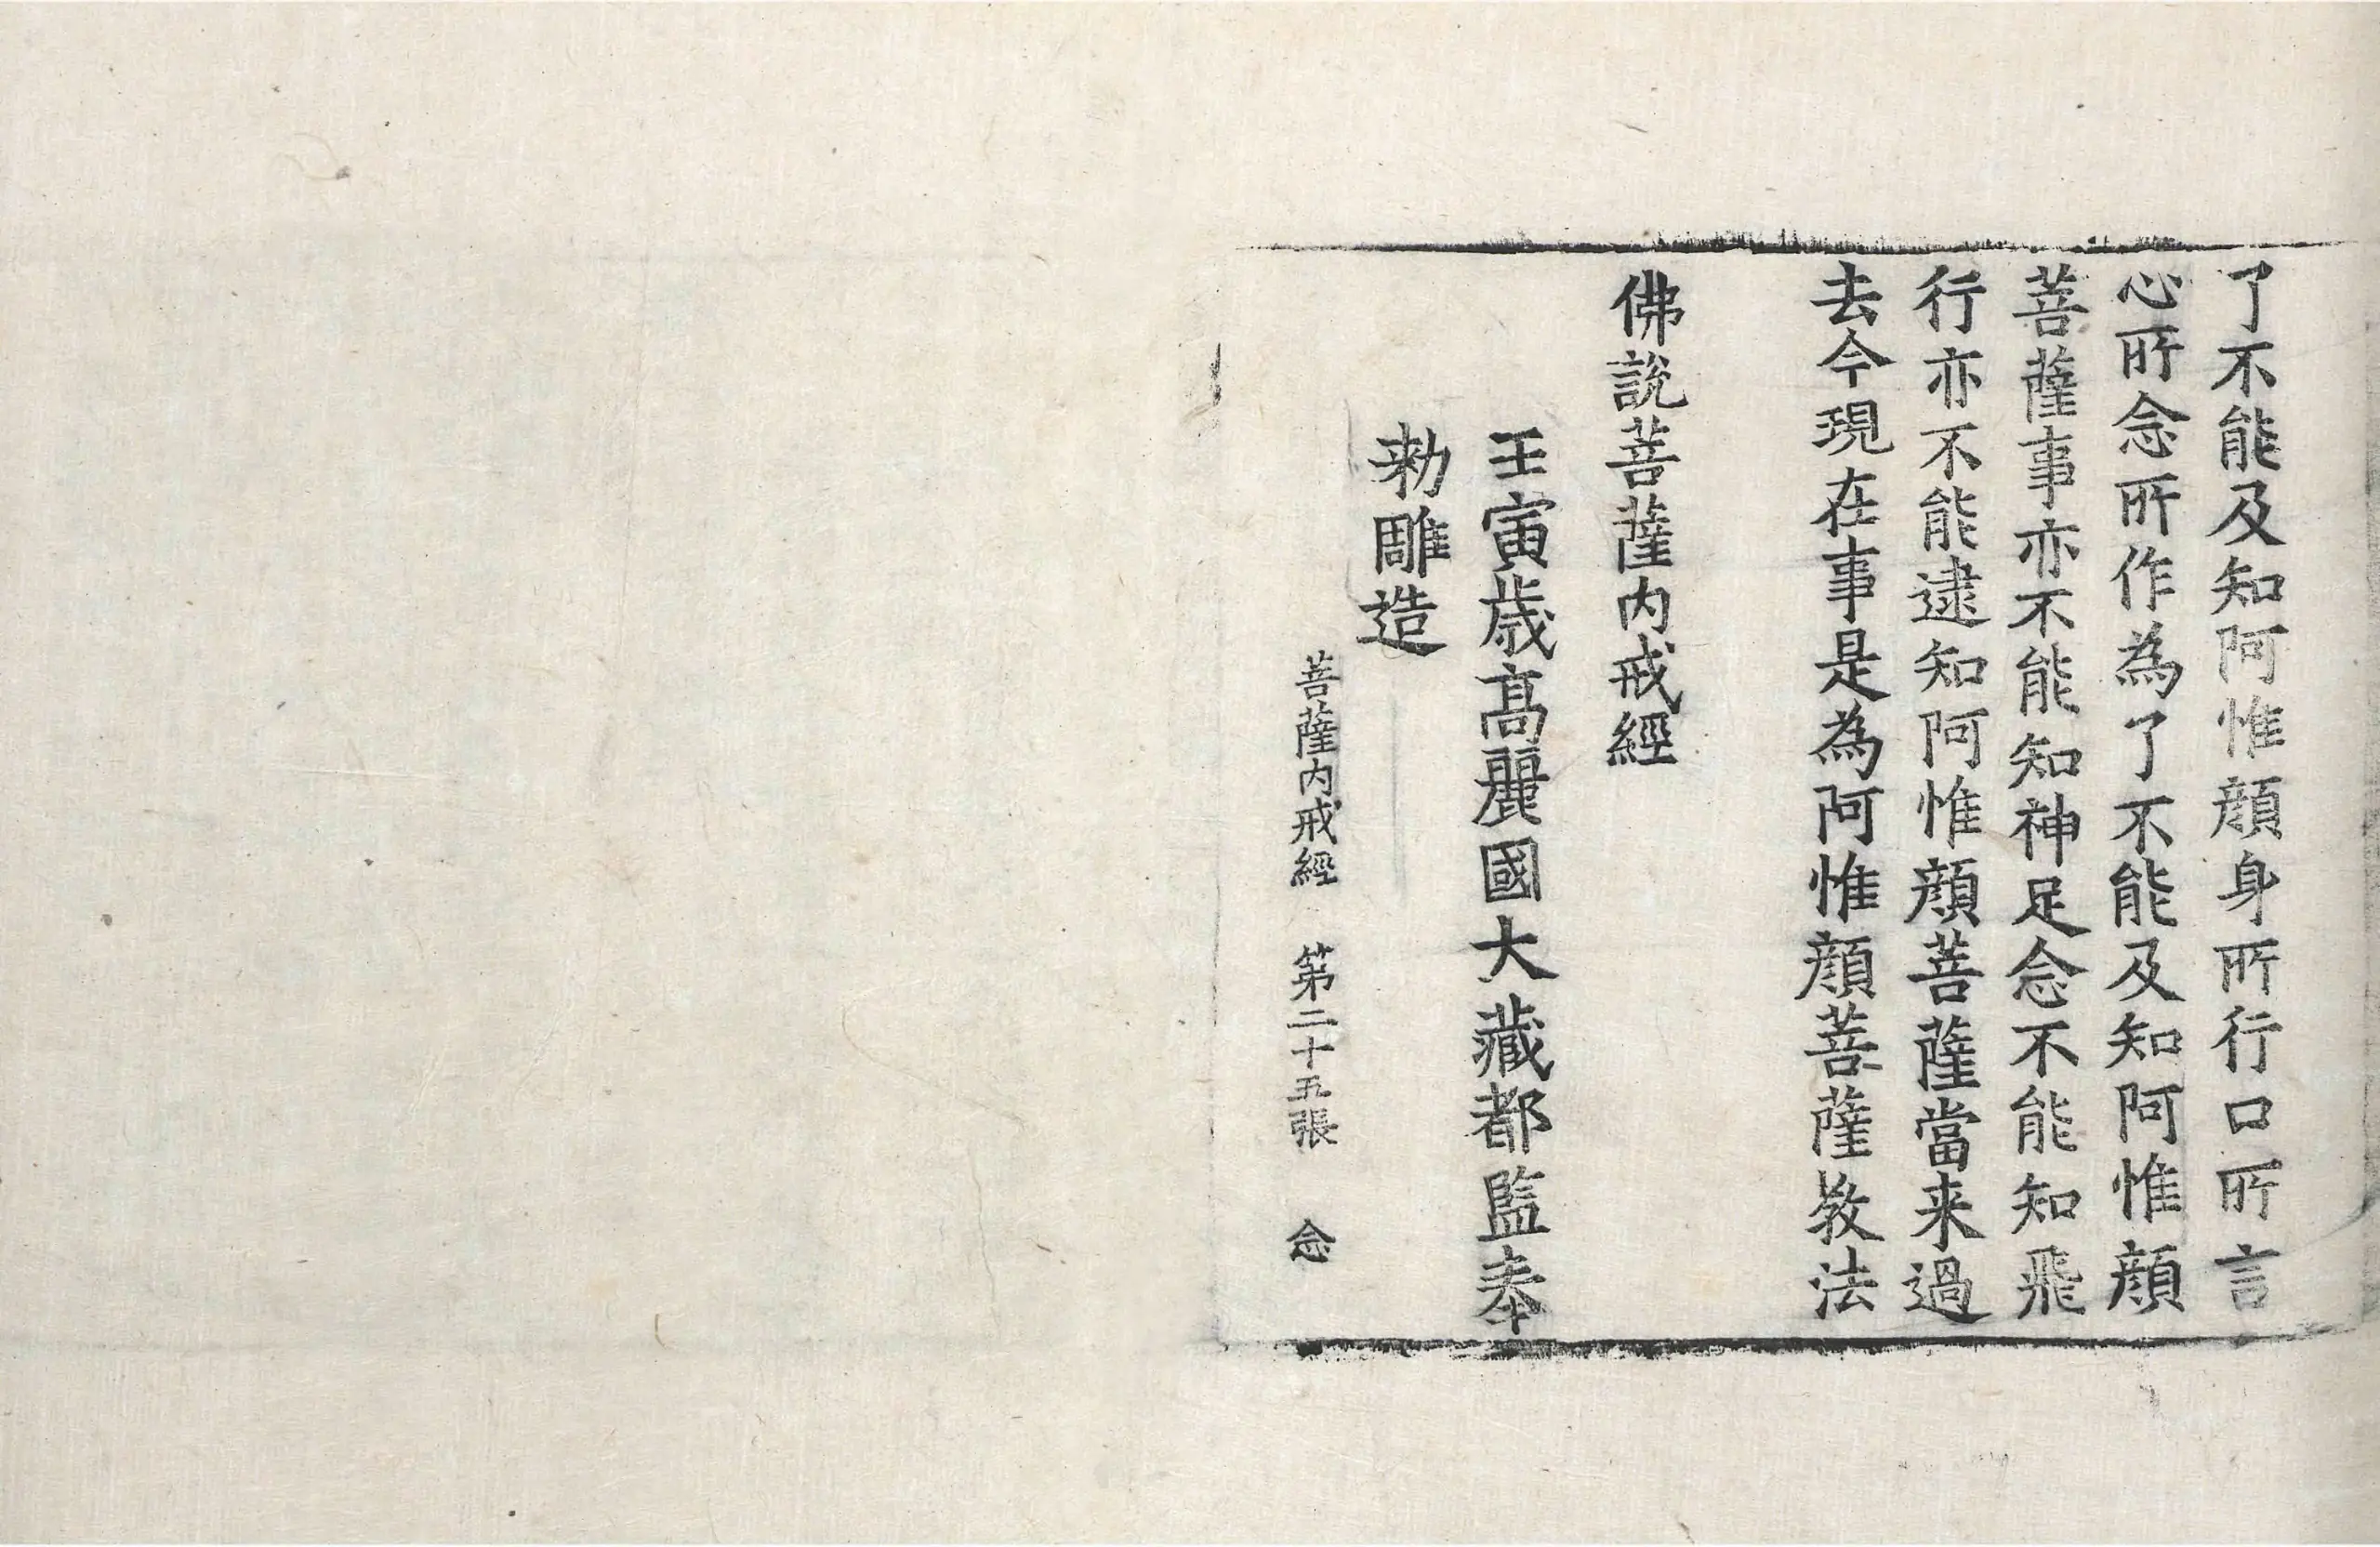 了不能及知阿惟顔身所行口所言
心所念所作為了不能及知阿惟顔
菩薩事亦不能知神足念不能知飛
行亦不能逮知阿惟顔菩薩當来過
去今現在事是為阿惟顔菩薩教法
佛說菩薩内戒經
壬寅歳髙麗國大藏都監奉
勑雕造
菩薩内戒經 第二十五張 念